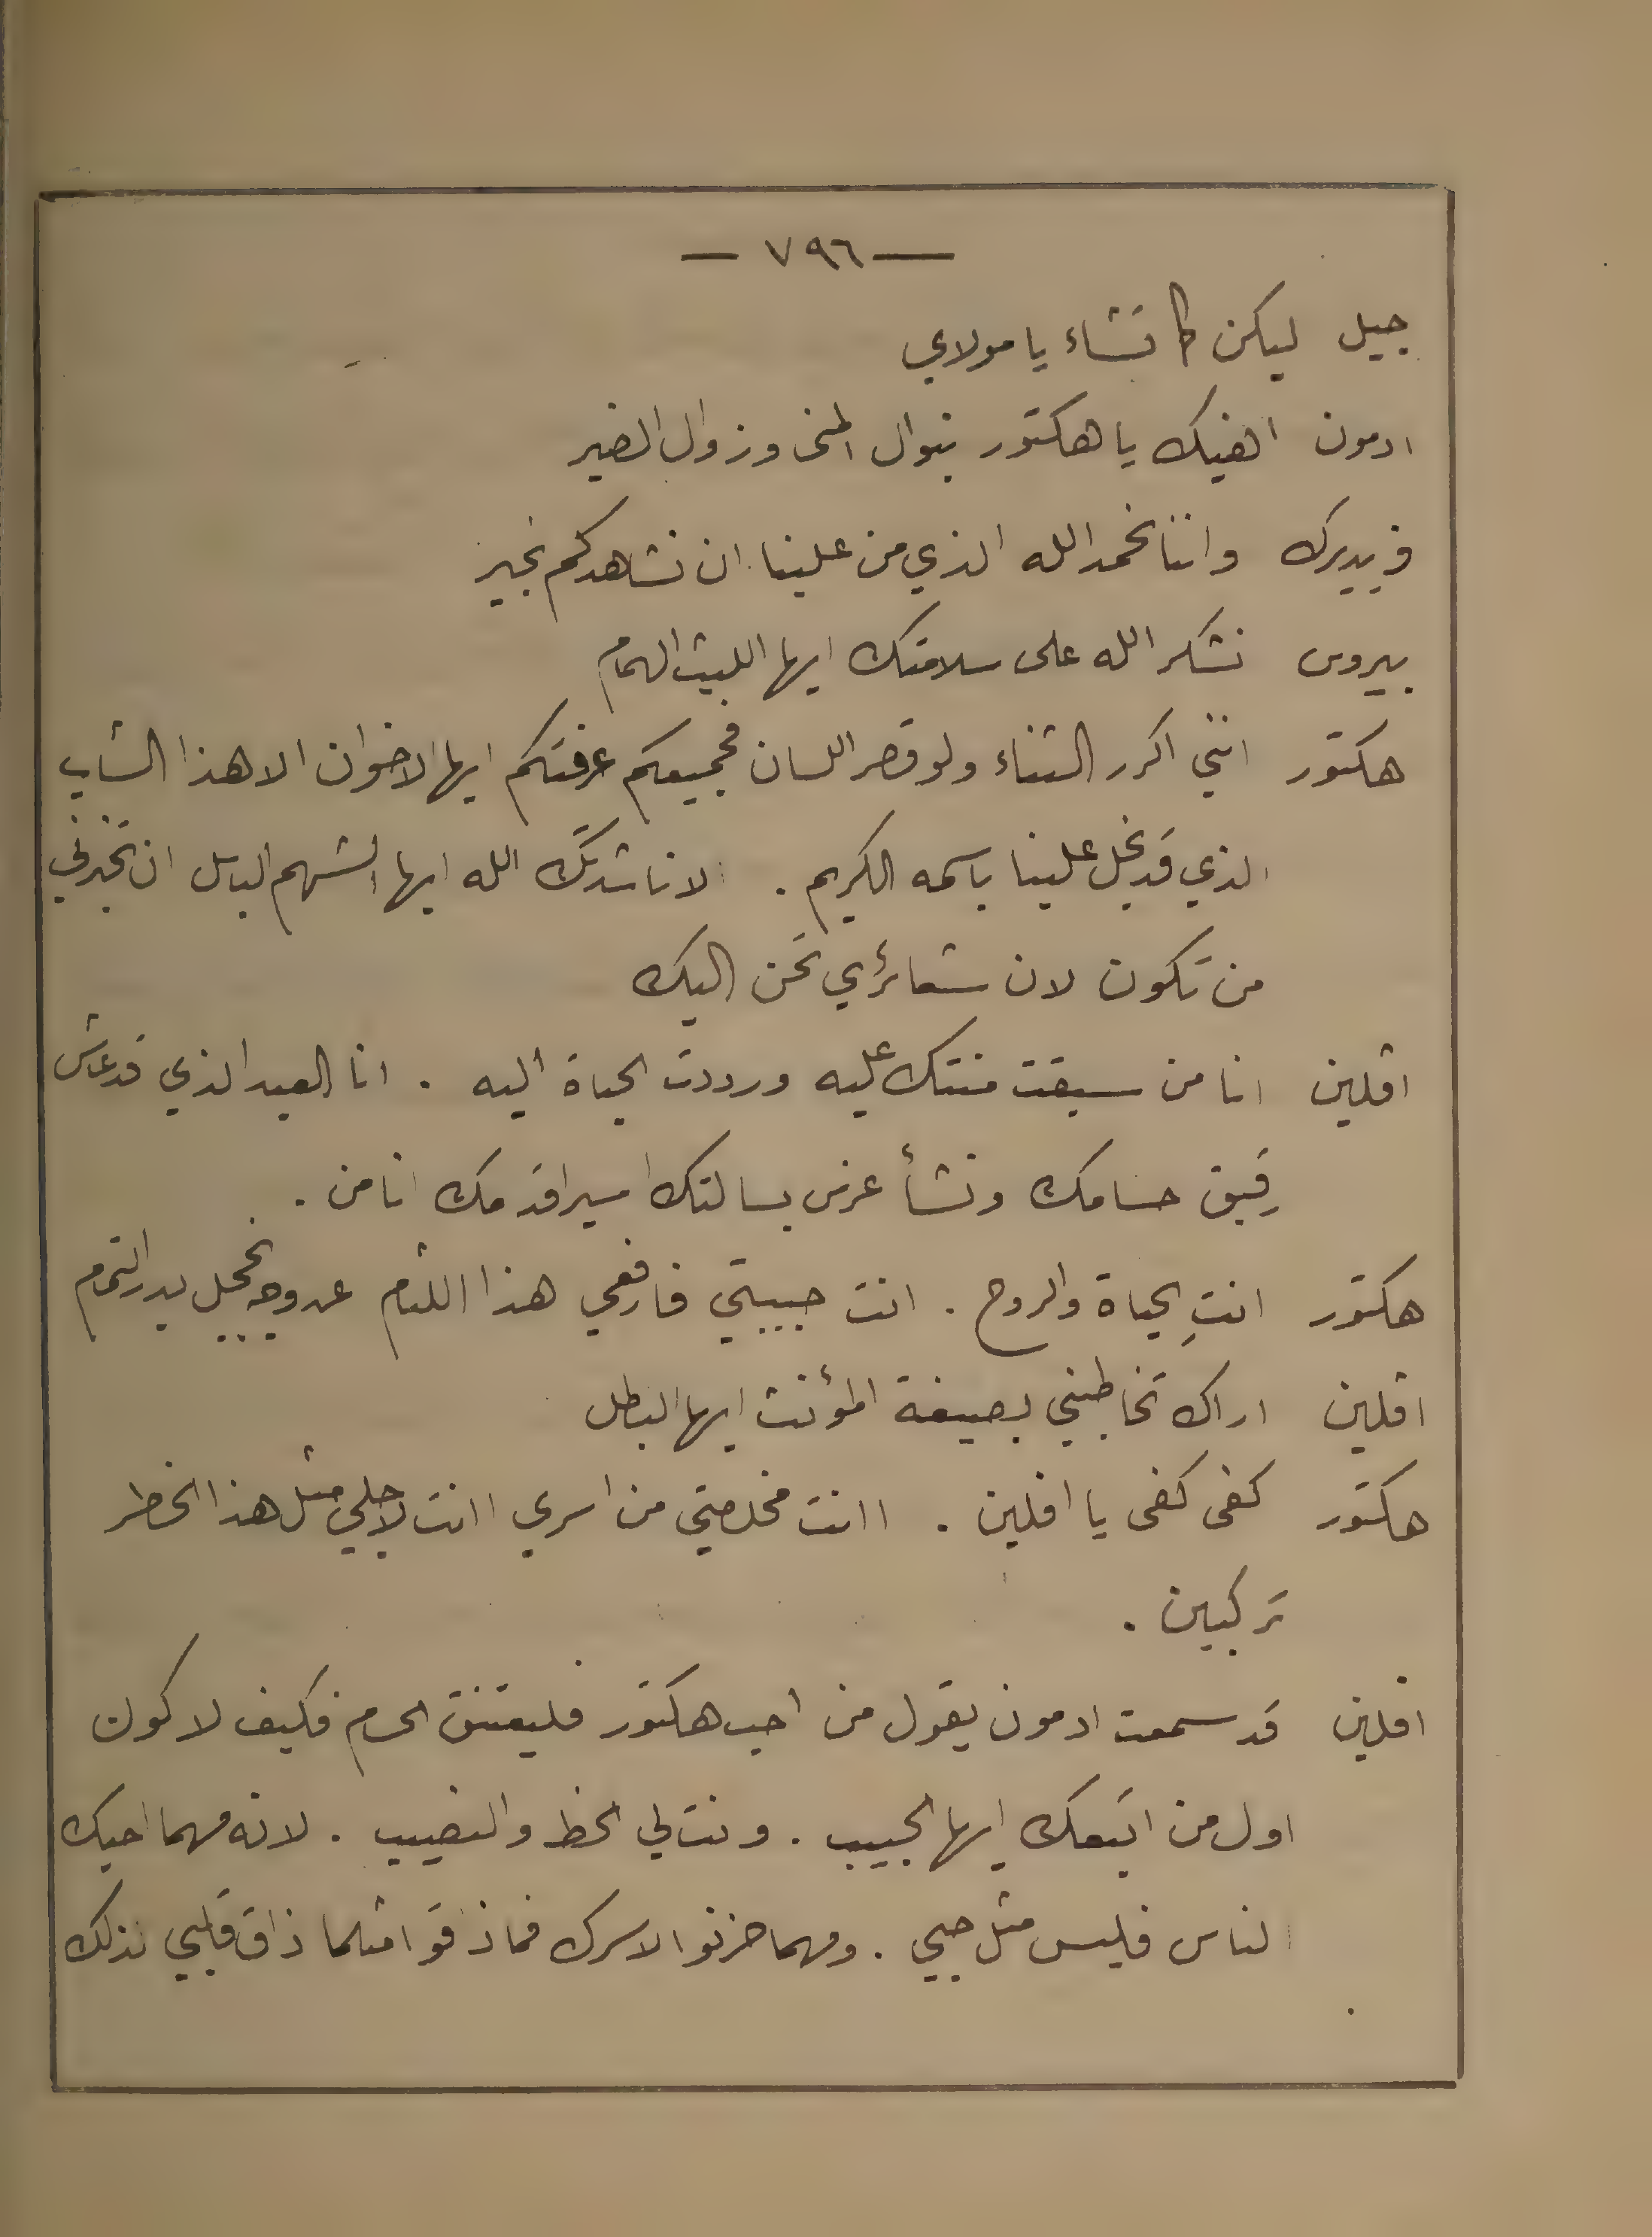 — ٧٩٦ —
جيل ليكن كما تشاء يا مولاي
ادمون اهنيك يا هكتور بنوال المنى وزوال الضير
فريديرك واننا نحمد الله الذي من علينا ان نشاهدكم بخير
بيروس نشكر الله على سلامتك ايها الليث الهمام
هكتور انني اكرر الثناء ولو قصر اللسان فجميعكم عرفتكم ايها الاخوان الا هذا الشاب
الذي قد بخل علينا باسمه الكريم . الا ناشدتك الله ايها الشهم الباسل ان تخبرني
من تكون لان شعائري تحن اليك
افلين انا من سبقت منتك عليه ورددت الحياة اليه . انا العبد الذي قد عاش
رقيق حسامك ونشأ غرس بسالتك اسير اقدمك انا من .
هكتور انتِ الحياة والروح . انت حبيبتي فارفعي هذا اللثام عن وجه يخجل بدر التمام
افلين اراك تخاطبني بصيغة المؤنث ايها البطل
هكتور كفى كفى يا افلين . اانت مخلصتي من اسري اانت لاجلي مثل هذا الخطر
تركبين .
افلين قد سمعت ادمون يقول من احب هكتور فليعتنق الحسام فكيف لا كون
اول من اتبعك ايها الحبيب . ونت لي الحظ والنصيب . لانه مهما احبك
الناس فليس مثل حبي . ومهما حزنوا لاسرك فما ذاقوا مثلما ذاق قلبي لذلك